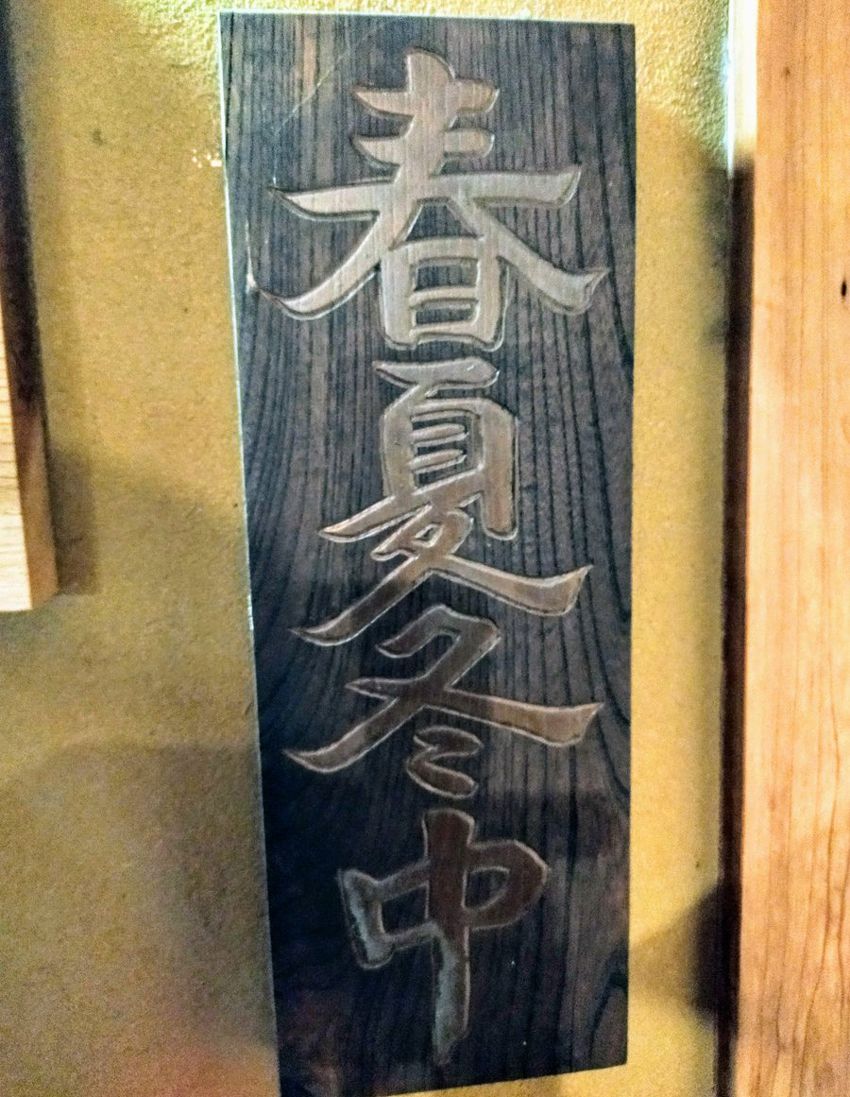 春夏冬中